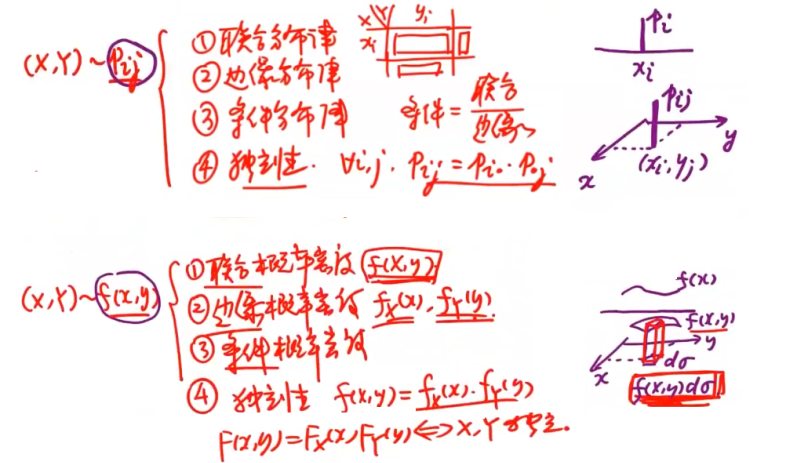 (X,Y)~Pij
①联合分布律
②边缘分布律
③条件分布律 条件=联合/边缘
④独立性. ∀i,j. Pij=Pi•·P•j
X\Y yj
xi
Pi
xi
Pij
y
x
(xi,yj)
(X,Y)~f(x,y)
①联合概率密度 f(x,y)
②边缘概率密度 fX(x).fY(y)
③条件概率密度
④独立性 f(x,y)=fX(x)·fY(y)
F(x,y)=FX(x)FY(y)⟺X,Y独立.
f(x)
f(x,y)
y
x
dσ
f(x,y)dσ